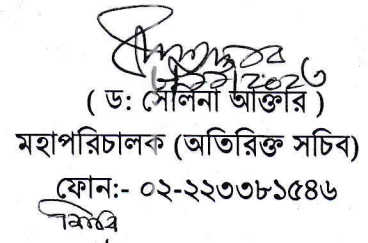 ( ড: সেলিনা আক্তার )
মহাপরিচালক (অতিরিক্ত সচিব)
ফোন:- ০২-২২৩৩৮১৫৪৬